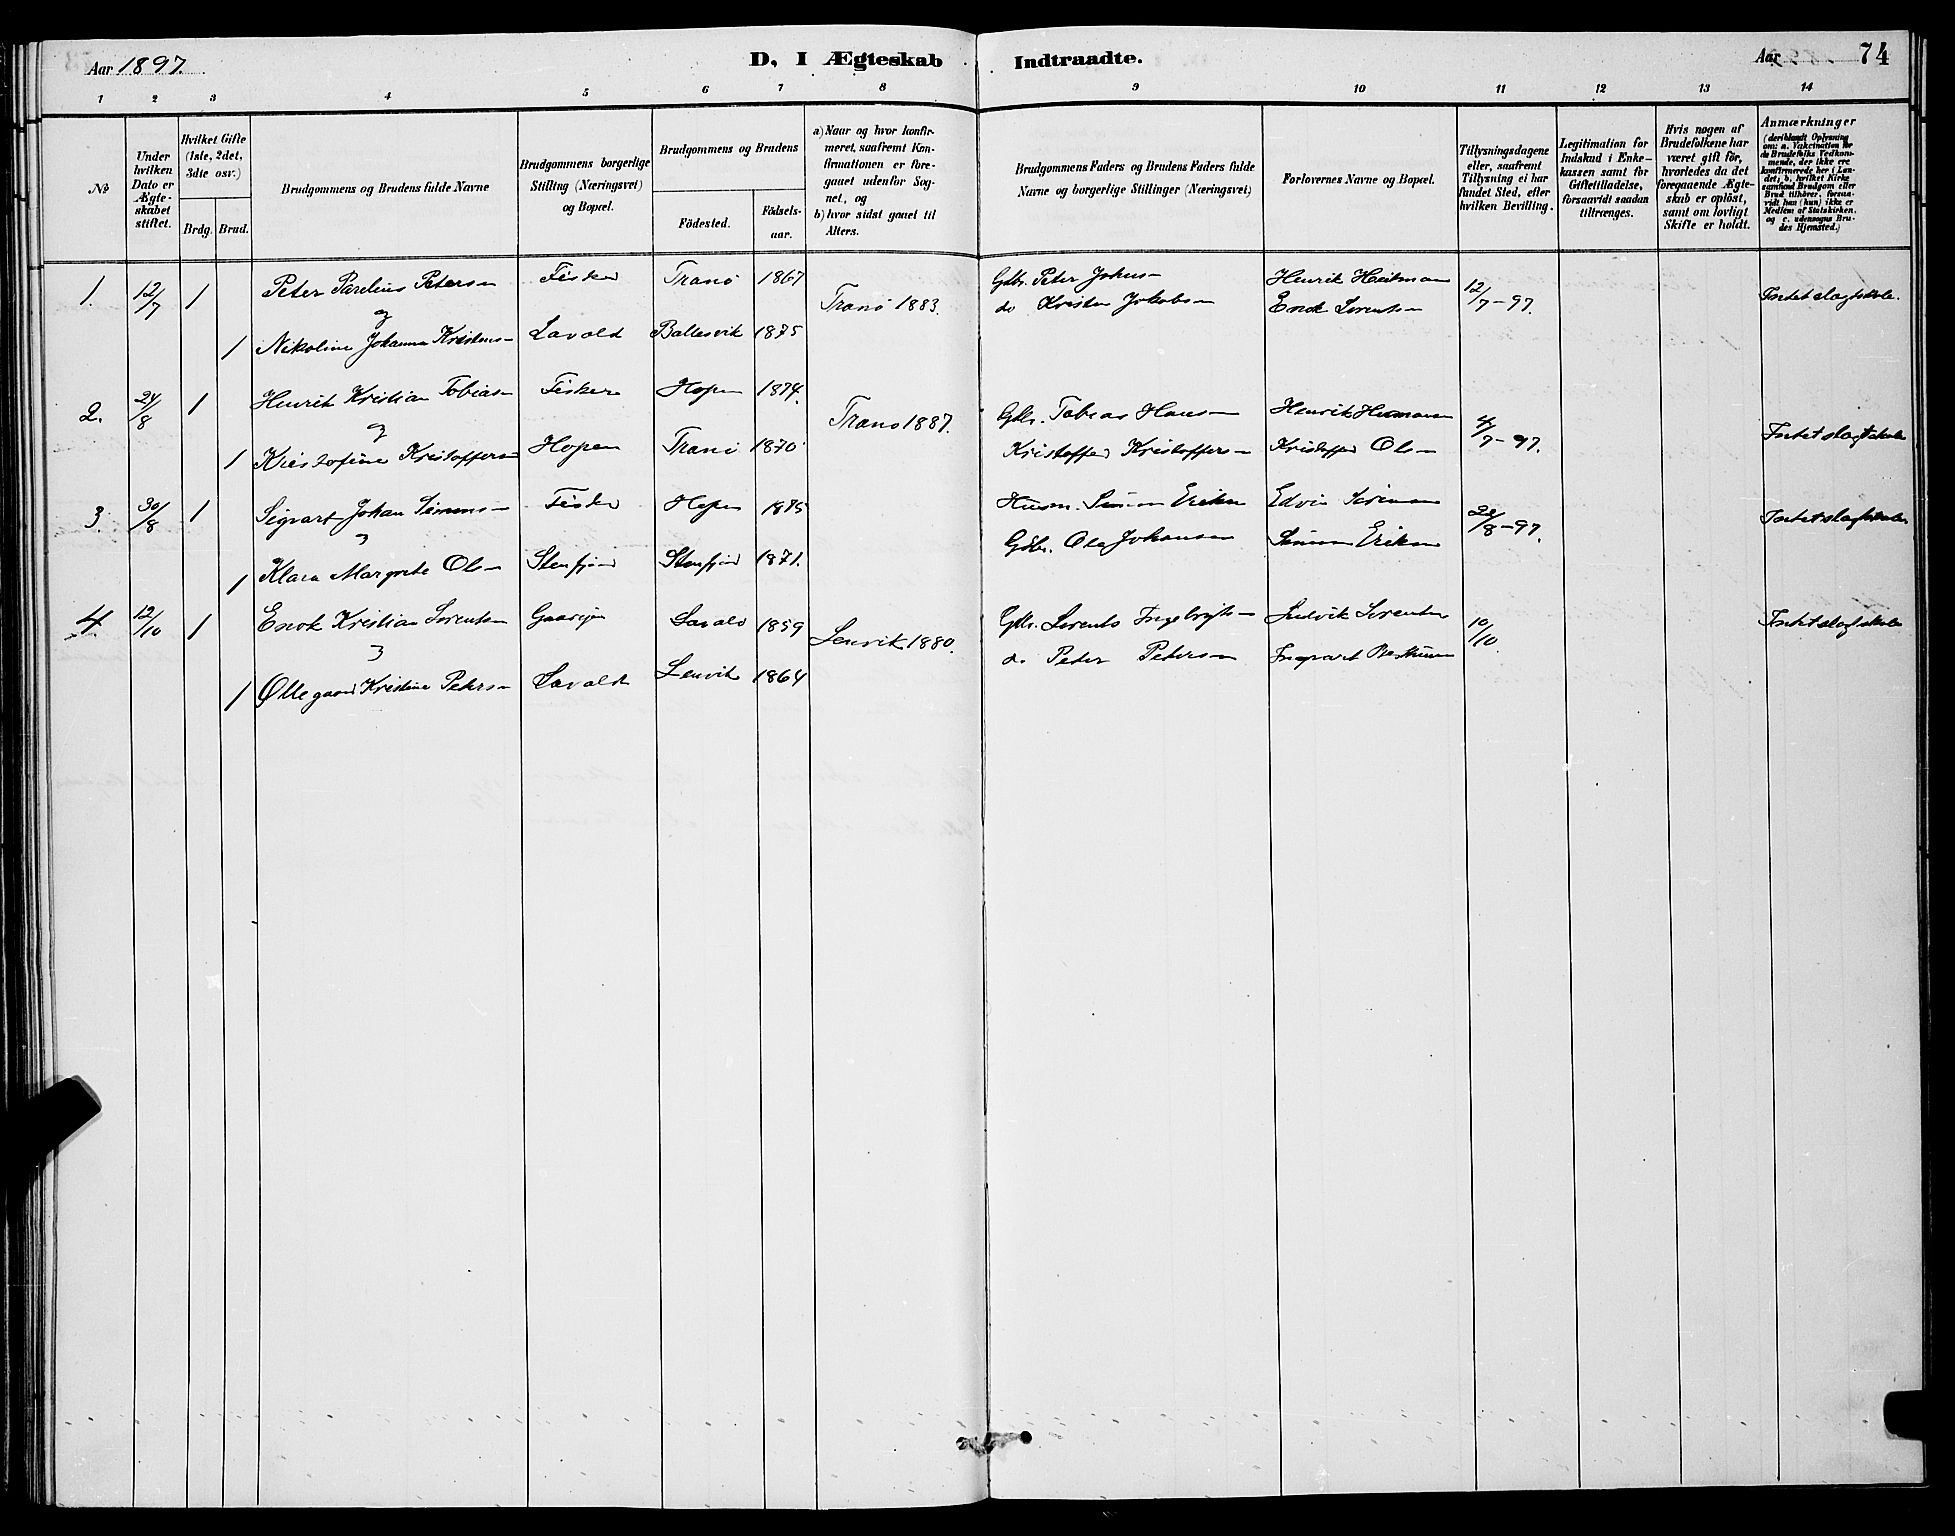 Aar 1897.
D, I Ægteskab Indtraadte.
Aar 74
1 2 3 4 5 6 7 8 9 10 11 12 13 14
No
Under hvilken Dato er Ægteskabet stiftet.
Hvilket Gifte (1ste, 2det, 3die osv.)
Brdg. Brud.
Brudgommens og Brudens fulde Navne
Brudgommens borgerlige Stilling (Næringsvei) og Bopæl.
Brudgommens og Brudens
Födested. Födselsaar.
a) Naar og hvor konfirmeret, saafremt Konfirmationen er foregaaet udenfor Sognet, og
b) hvor sidst gaaet til Alters.
Brudgommens Faders og Brudens Faders fulde Navne og borgerlige Stillinger (Næringsvei)
Forlovernes Navne og Bopæl.
Tillysningsdagene eller, saafremt Tillysning ei har fundet Sted, efter hvilken Bevilling.
Legitimation for Indskud i Enkekassen samt for Giftetilladelse, forsaavidt saadan tiltrænges.
Hvis nogen af Brudefolkene har været gift för, hvorledes da det foregaaende Ægteskab er oplöst, samt om lovligt Skifte er holdt.
Anmærkninger (deriblandt Oplysning om: a. Vakcination for de Brudefolks Vedkommende, der ikke ere konfirmerede her i Landet, b. hvilket Kirkesamfund Brudgom eller Brud tilhörer, forsaavidt han (hun) ikke er Medlem af Statskirken, og c. udensogns Brudes Hjemsted.)
1. 12/7 1 Peter Parelius Petersn Fisker Tranö 1867 Tranö 1883. Gbr. Peter Johns- Henrik Heitman 12/7-97. Intet slagtskab.
og do Kristen Jakobsn Enok Lorentsn
1 Nikoline Johanna Kristens- Lavold Ballesvik 1875
2. 24/8 1 Henrik Kristian Tobiasn Fisker Hopen 1874. Tranö 1887. Gbr. Tobias Hans- Henrik /7-97. Intet slagtskab
og Kristoffer Kristoffers- Kristoffer Ols-
1 Kristofine Kristoffersn Hopen Tranö 1870
3. 30/8 1 Sigvart Johan Simons- Fisker Hopen 1875 Husm. Simon Eriksn Edvin Simon Eriksn /8-97. Intet slagtskab
Gbr. Ole Johansen
1 Klara Margrete Ols- Stenfjord Stenfjord 1871.
4. 12/10 1 Enok Kristian Lorentsn Lavold 1859 Lenvik 1880. Gbr. Lorents Ingebrigts- Ludvik Lorentsn 10/10. Intet slagtskab
do Peter Petersn Ingvart
1 Ollegaard Kristine Petersn Lavold Lenvik 1864